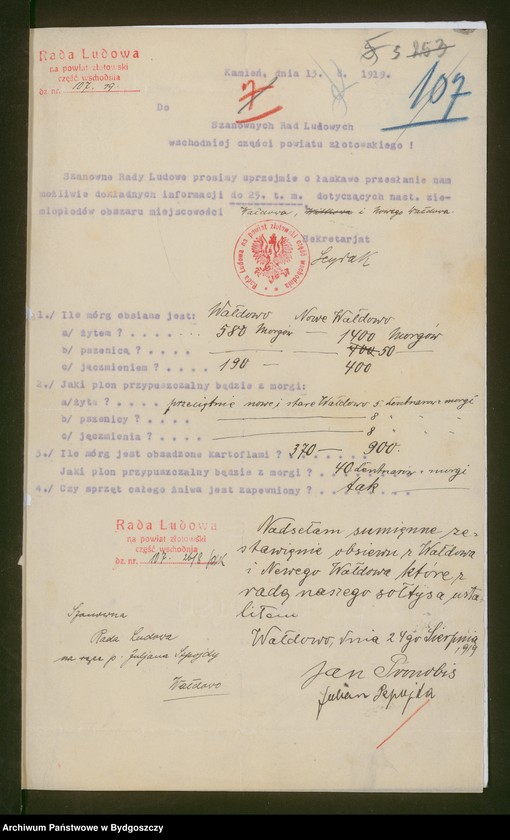 Rada Ludowa
na powiat złotowski
część wschodnia
dz. nr. 107. 19.
5 3 153
107
7
Kamień, dnia 13. 8. 1919.
Do
Szanownych Rad Ludowych
wschodniej części powiatu złotowskiego !
Szanowne Rady Ludowe prosimy uprzejmie o łaskawe przesłanie nam
możliwie dokładnych informacji do 25. t. m. dotyczących nast. zie-
miopłodów obszaru miejscowości Wałdowa, i Nowego Wałdowa.
Sekretarjat
Rada Ludowa na powiat Złotowski część wschodnia
1./ Ile mórg obsiane jest: Wałdowo Nowe Wałdowo
a/ żytem ? . . . . 580 Morgów 1400 Morgów
b/ pszenicą ? . . . . — 400 50
c/ jęczmieniem ? . . . . 190 — 400
2./ Jaki plon przypuszczalny będzie z morgi:
a/żyta ? . . . . przeciętnie nowe i stare Wałdowo 5 Centnarów z morgi
b/ pszenicy ? . . . . 8 " " "
c/ jęczmienia ? . . . . 8 " " "
3./ Ile mórg jest obsadzone kartoflami ? 370 — 900
Jaki plon przypuszczalny będzie z morgi ? . 40 Centnarów z morgi
4./ Czy sprzęt całego żniwa jest zapewniony ? . . tak
Rada Ludowa
na powiat złotowski
część wschodnia
dz. nr. 107. 26/8
Nadsełam sumienne ze-
stawienie obsiewu z Wałdowa
i Nowego Wałdowa które z
radą naszego sołtysa usta-
liłem
Wałdowo, dnia 24go Sierpnia
1919
Szanowna
Rada Ludowa
na ręce p. Juljana
Wałdowo
Jan
Julian
Archiwum Państwowe w Bydgoszczy